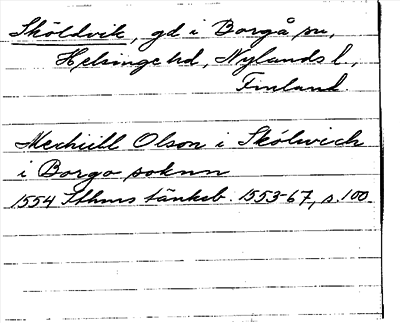 Sköldvik, gd i Borgå sn,
Helsinge hd, Nylands l,
Finland.
Mechiill Olson i Skólwich
i Borgo soknn
1554 Sthms tänkeb. 1553-67, s. 100.